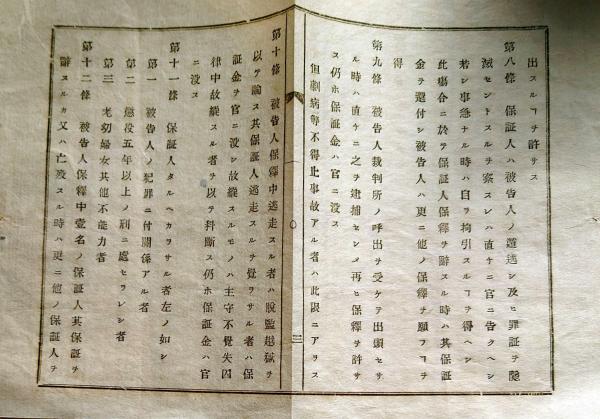 出スルヿヲ許サス
第八條　保証人ハ被告人ノ遁逃シ及ヒ罪証ヲ隠
滅セントスルヲ察スレハ直チニ官ニ告クヘシ
若シ事急ナル時ハ自ヲ拘引スルヿヲ得ヘシ
此塲合ニ於テ保証人保釋ヲ辭スル時ハ其保証
金ヲ還付シ被告人ハ更ニ他ノ保釋ヲ願フヿヲ
得
第九條　被告人裁判所ノ呼出ヲ受ケテ出頭セサ
ル時ハ直チニ之ヲ逮捕セシメ再ヒ保釋ヲ許サ
ス仍ホ保証金ハ官ニ没ス
但劇病等不得止事故アル者ハ此限ニアラス
三
第十條　被告人保釋中逃走スル者ハ脱監越獄ヲ
以テ論ス其保証人逃走スルヲ覺ラサル者ハ保
証金ヲ官ニ没シ故縱スルモノハ主守不覺失囚
律中故縱スル者ヲ以テ科斷ス仍ホ保証金ハ官
ニ没ス
第十一條　保証人タルヘカヲサル者左ノ如シ
第一　被告人ノ犯罪ニ付關係アル者
第二　懲役五年以上ノ刑ニ處セラレシ者
第三　老幼婦女其他不能力者
第十二條　被告人保釋中壹名ノ保証人其保証ヲ
辭スルカ又ハ亡殁スル時ハ更ニ他ノ保証人ヲ